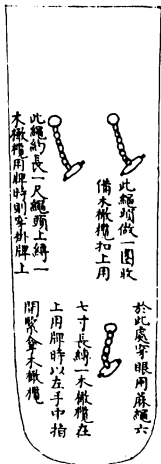 此繩頭做一圈收
備木橄欖扣上用
此繩約長一尺繩頭上縛一
木橄欖用牌時則牢掛牌上
於此處穿眼用藤繩六
七寸長縛一木橄欖在
上用牌時以左手中指
間緊拿木橄欖